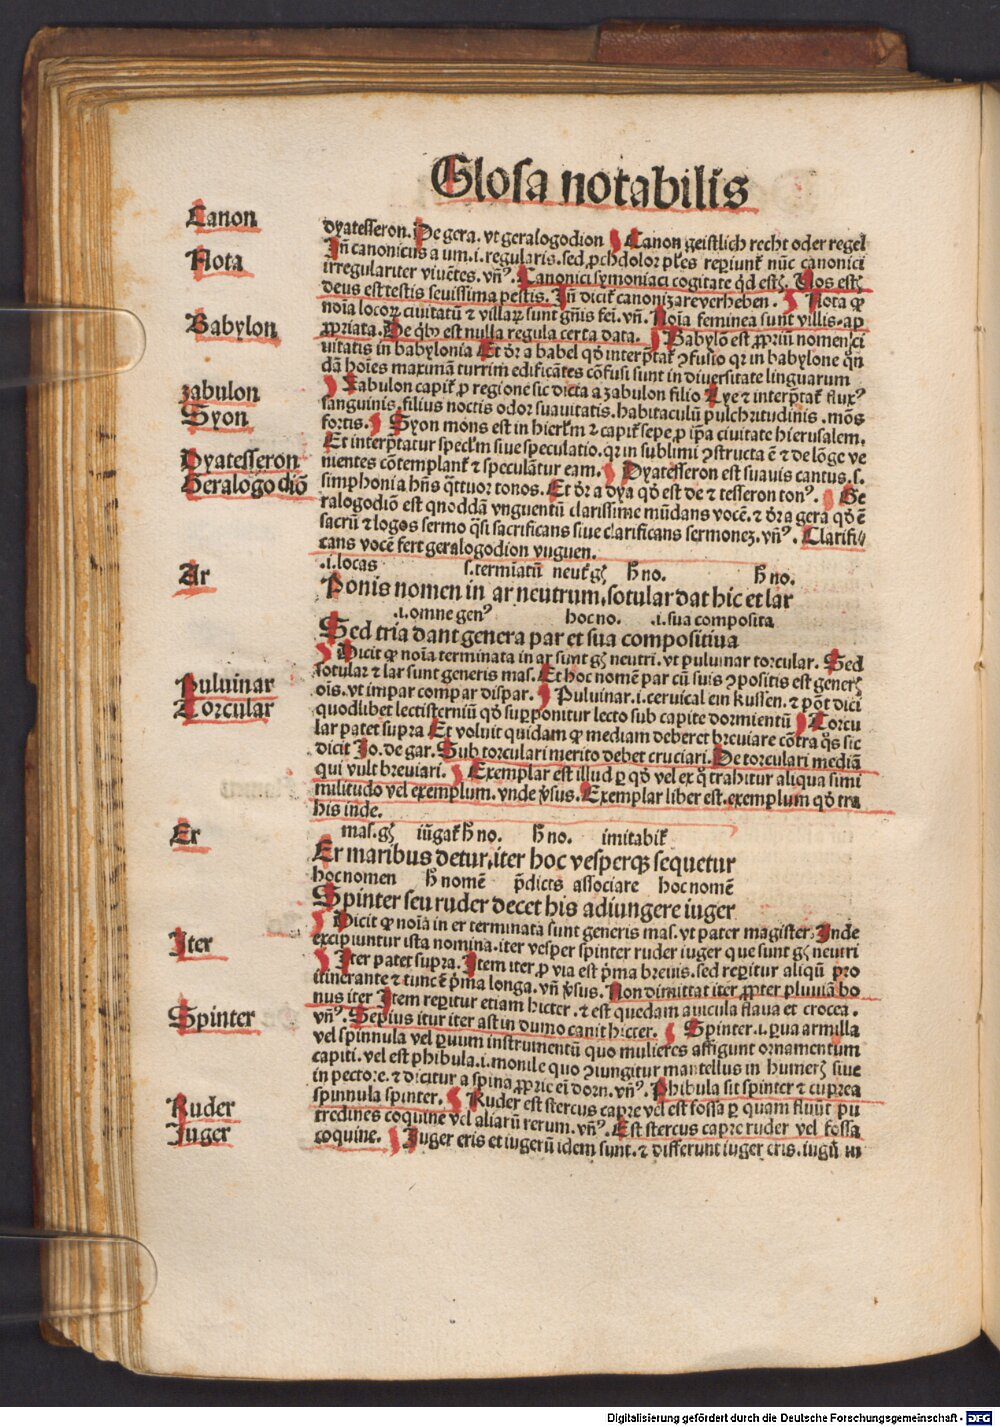 Glosa notabilis
Canon
Nota
Babylon
zabulon
Syon
Dyatesseron
Geralogodiō
dyatesseron. De gera. vt geralogodion Canon geistlich recht oder regel
Iñ canonicus a um .i. regularis. sed ꝓchdolor pl'es reꝑiunt' nūc canonici
irregulariter viuētes. vñ⁹. Canonici symoniaci cogitate qd' estꝫ. Uos estꝫ
deus est testis seuissima pestis. Iñ dicit' canonizare verheben. Nota ꝙ
noīa locoꝝ ciuitatū ⁊ villaꝝ sunt gn̄is fei. vñ. Noīa feminea sunt villis ap
ꝓpriata. De qb' est nulla regula certa data. Babylō est ꝓpriū nomen ci
uitatis in babylonia Et dr̄ a babel qd' interp̄tat' ꝯfusio qr in babylone qn̄
dā hoīes maximā turrim edificātes cōfusi sunt in diuersitate linguarum
Zabulon capit' ꝓ regione sic dicta a zabulon filio Lye ⁊ interp̄tat' flux⁹
sanguinis. filius noctis odor suauitatis. habitaculū pulchritudinis. mōs
fortis. Syon mons est in hierl'm ⁊ capit' sepe ꝓ ip̄a ciuitate hierusalem.
Et interp̄tatur specl'm siue speculatio. qr in sublimi ꝯstructa ē ⁊ de lōge ve
nientes cōtemplant' ⁊ speculātur eam. Dyatesseron est suauis cantus. s.
simphonia hn̄s qttuor tonos. Et dr̄ a dya qd' est de ⁊ tesseron ton⁹. Ge
ralogodiō est qnoddā vnguentū clarissime mūdans vocē. ⁊ dr̄ a gera qd' ē
sacrū ⁊ logos sermo qsi sacrificans siue clarificans sermoneꝫ. vñ⁹. Clarifi
cans vocē fert geralogodion vnguen.
Ar
.i. locas s. termiatū neut' gꝫ h̄ no. h̄ no.
Ponis nomen in ar neutrum, sotular dat hic et lar
.i. omne gen⁹ hoc no. .i. sua composita
Sed tria dant genera par et sua compositiua
Puluinar
Torcular
Dicit ꝙ noīa terminata in ar sunt gꝫ neutri. vt puluinar torcular. Sed
sotular ⁊ lar sunt generis mas. Et hoc nomē par cū suis ꝯpositis est generꝫ
oīs. vt impar compar dispar. Puluinar .i. ceruical ein kussen. ⁊ pōt dici
quodlibet lectisterniū qd' suꝑponitur lecto sub capite dormientū Torcu
lar patet supra Et voluit quidam ꝙ mediam deberet breuiare cōtra qs sic
dicit Io. de gar. Sub torculari merito debet cruciari. De torculari mediā
qui vult breuiari. Exemplar est illud ꝑ qd' vel ex q trahitur aliqua simi
militudo vel exemplum. vnde v̄sus. Exemplar liber est. exemplum qd' tra
his inde.
Er
mas. gꝫ iūgat' h̄ no. h̄ no. imitabit'
Er maribus detur, iter hoc vesperqꝫ sequetur
hoc nomen h̄ nomē p̄dictꝫ associare hoc nomē
Spinter seu ruder decet his adiungere iuger
Iter
Spinter
Ruder
Iuger
Dicit ꝙ noīa in er terminata sunt generis mas. vt pater magister. Inde
excipiuntur ista nomina. iter vesper spinter ruder iuger que sunt gꝫ neutri
Iter patet supra. Item iter ꝓ via est p̄ma breuis. sed reꝑitur aliqū pro
itinerante ⁊ tunc ē p̄ma longa. vñ v̄sus. Non dimittat iter ꝓpter pluuiā bo
nus iter Item reꝑitur etiam hicter. ⁊ est quedam auicula flaua et crocea.
vñ⁹. Sepius itur iter ast in dumo canit hicter. Spinter .i. ꝑua armilla
vel spinnula vel ꝑuum instrumentū quo mulieres affigunt ornamentum
capiti. vel est phibula .i. monile quo ꝯiungitur mantellus in humerꝫ siue
in pectore. ⁊ dicitur a spina ꝓprie eī dorn. vñ⁹. Phibula sit spinter ⁊ cuprea
spinnula spinter. Ruder est stercus capre vel est fossa ꝑ quam fluūt pu
tredines coquine vel aliarū rerum. vñ⁹. Est stercus capre ruder vel fossa
coquine. Iuger eris et iugerū idem sunt. ⁊ differunt iuger eris. iugū in
Digitalisierung gefördert durch die Deutsche Forschungsgemeinschaft - DFG